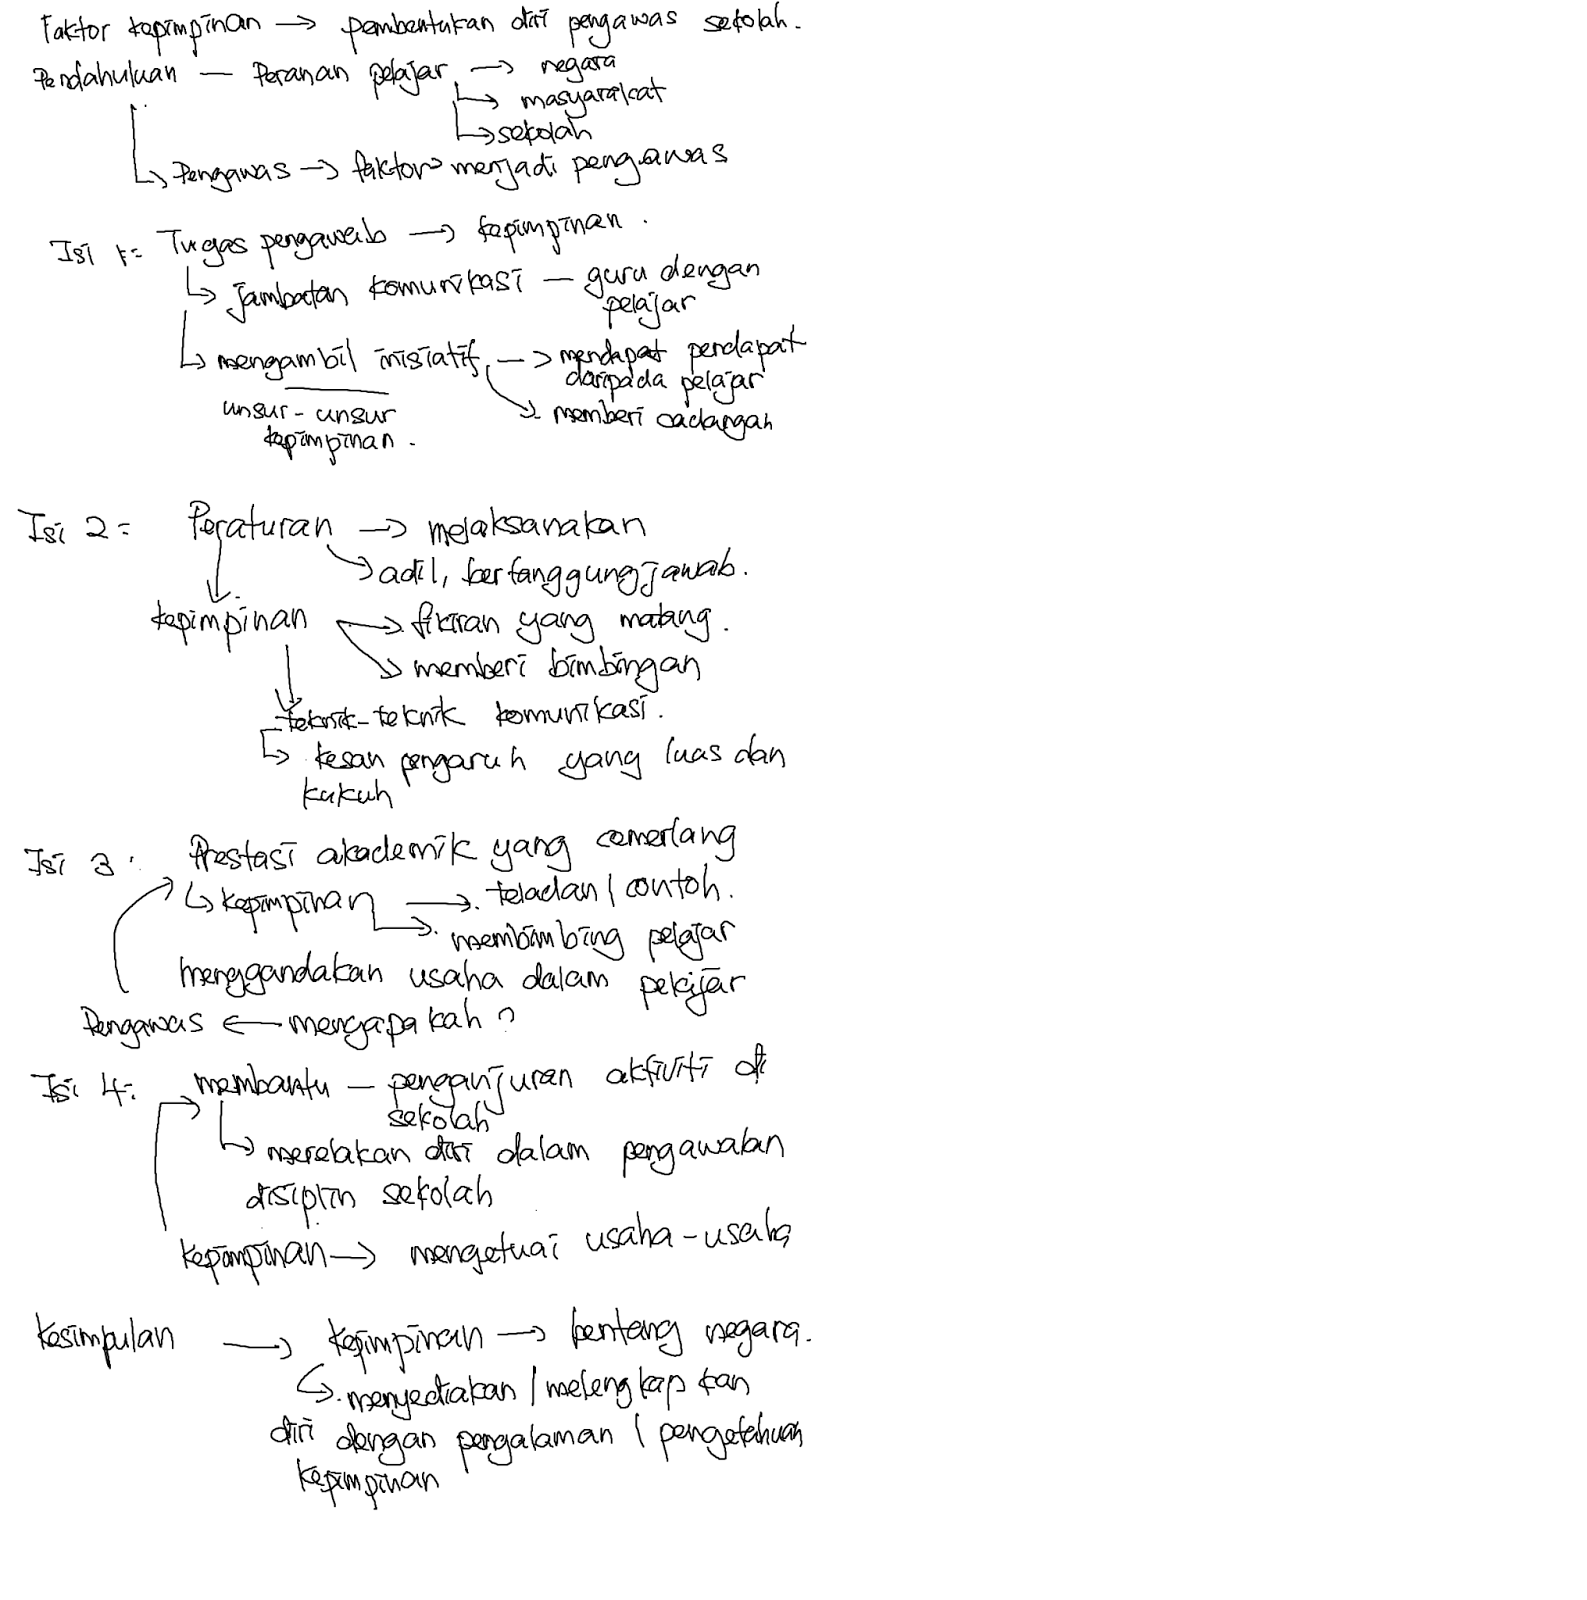 Faktor kepimpinan → pembentukan diri pengawas sekolah.
Pendahuluan — Peranan pelajar → negara
→ masyarakat
→ sekolah
→ Pengawas → faktor² menjadi pengawas
Isi 1: Tugas pengawas → kepimpinan.
→ jambatan komunikasi — guru dengan
pelajar
→ mengambil inisiatif → mendapat pendapat
daripada pelajar
unsur-unsur → memberi cadangan
kepimpinan.
Isi 2: Peraturan → melaksanakan
→ adil, bertanggungjawab.
kepimpinan → fikiran yang matang.
→ memberi bimbingan
teknik-teknik komunikasi.
→ kesan pengaruh yang luas dan
kukuh
Isi 3: Prestasi akademik yang cemerlang
→ kepimpinan → teladan / contoh.
→ membimbing pelajar
menggandakan usaha dalam
Pengawas ← mengapakah?
Isi 4: membantu — penganjuran aktiviti di
sekolah
→ merelakan diri dalam pengawalan
disiplin sekolah
Kepimpinan → mengetuai usaha-usaha
Kesimpulan → kepimpinan → benteng negara.
→ menyediakan / melengkapkan
diri dengan pengalaman / pengetahuan
kepimpinan